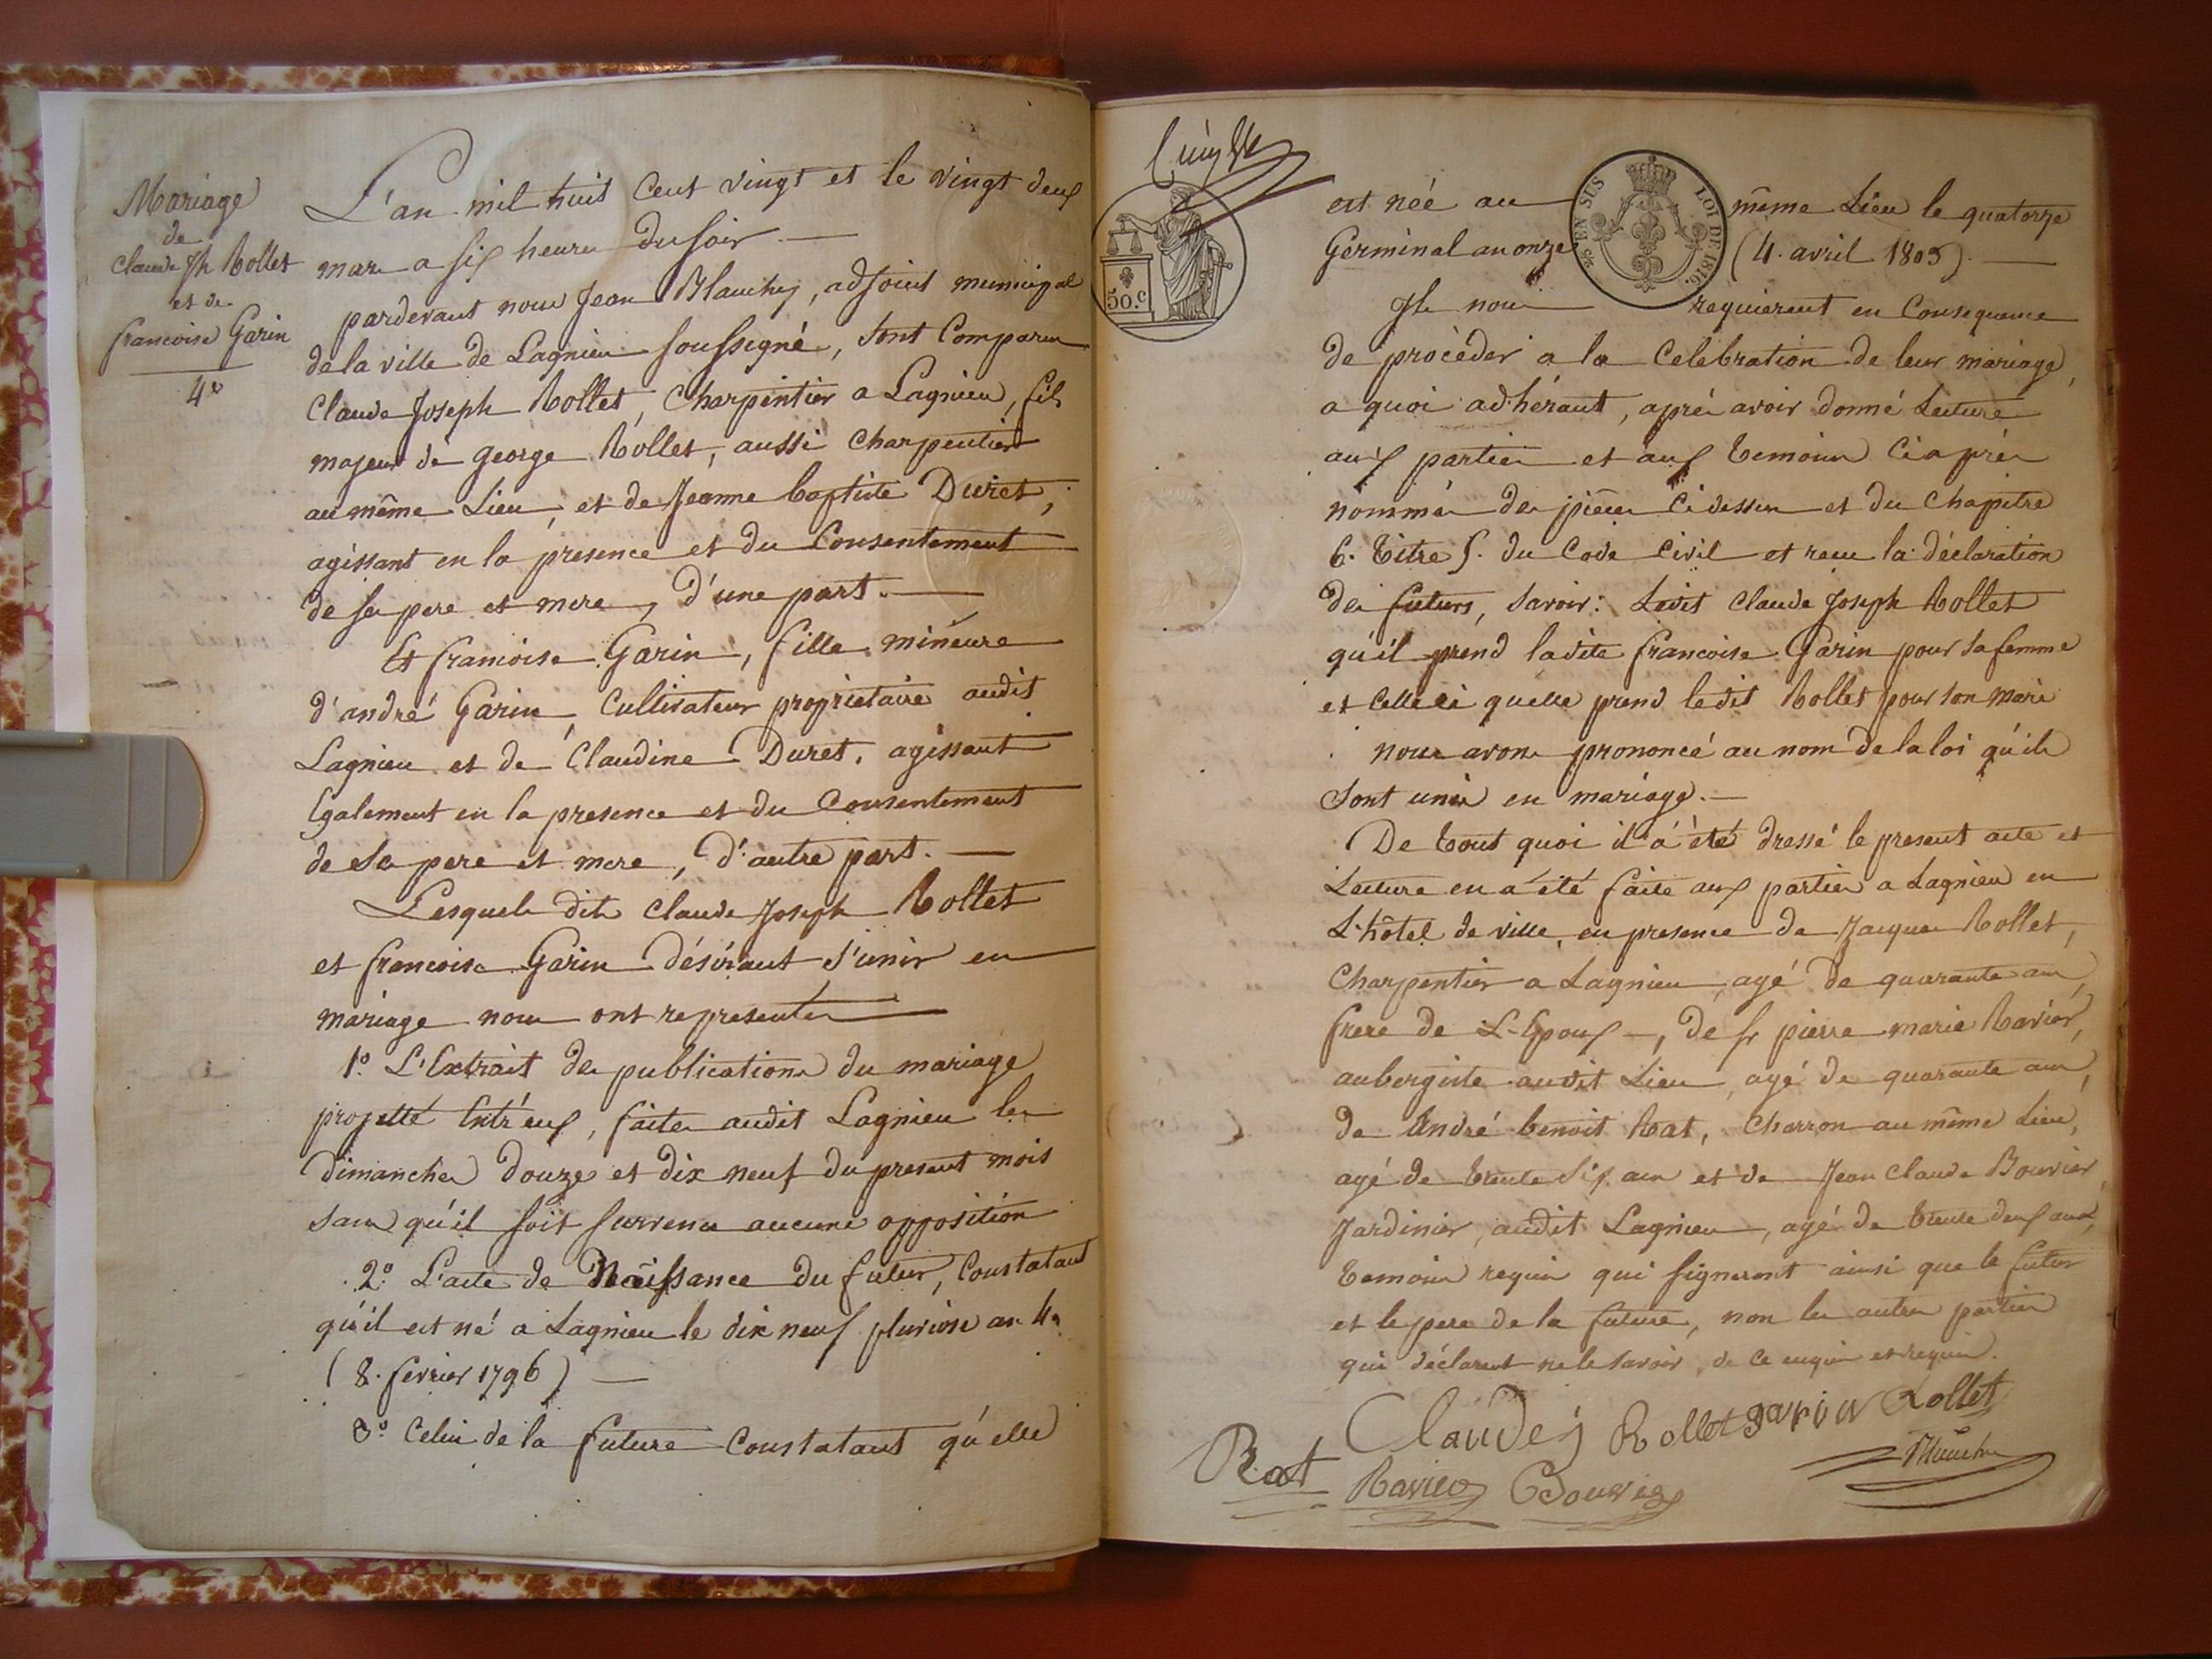 Mariage
de
Claude Jh Rollet
et de
francoise Garin
4e
L'an mil huit Cent vingt et le vingt deux
mars a six heures du soir
pardevant nous Jean Blanchy, adjoint municipal
de la ville de Lagnieu soussigné, sont Comparus
Claude Joseph Rollet, Charpentier a Lagnieu, fils
majeur de george Rollet, aussi charpentier
au même Lieu, et de Jeanne baptiste Duret,
agissant en la presence et du Consentement
de ses pere et mere, d'une part.
Et francoise Garin, fille mineure
d'andré Garin, Cultivateur proprietaire audit
Lagnieu et de Claudine Duret, agissant
Egalement en la presence et du Consentement
de ses pere et mere, d'autre part.
Lesquels dits Claude Joseph Rollet
et francoise Garin désirant s'unir en
mariage nous ont representés
1º. L'Extrait des publications du mariage
projetté Entr'eux, faites audit Lagnieu les
Dimanches douze et dix neuf du present mois
sans qu'il soit survenu aucune opposition
2º. L'acte de Naissance du futur, Constatant
qu'il est né a Lagnieu le dix neuf pluviose an 4e
(8. fevrier 1796)
3º Celui de la future Constatant qu'elle
50.C
25 EN SUS LOI DE 1816.
est née au même Lieu le quatorze
Germinal an onze (4. avril 1803).
Ils nous requierent en Consequence
de procèder a la Celebration de leur mariage,
a quoi adhérant, après avoir donné Lecture
aux parties et aux temoins Ci après
nommés des pièces Ci dessus et du Chapitre
6. Titre 5. du Code Civil et recu la déclaration
des futurs, savoir: Ledit Claude Joseph Rollet
qu'il prend ladite francoise Garin pour sa femme
et Celle ci quelle prend ledit Rollet pour son mari
nous avons prononcé au nom de la loi qu'ils
sont unis en mariage.
De tout quoi il a été dressé le present acte et
Lecture en a été faite aux parties a Lagnieu en
L'hôtel de ville, en presence de Jacques Rollet,
Charpentier a Lagnieu, agé de quarante ans,
frere de L'Epoux, de sr pierre marie Ravier,
aubergiste audit Lieu, agé de quarante ans,
de André benoit Rat, Charron au même Lieu,
agé de trente six ans et de Jean Claude Bouvier
Jardinier, audit Lagnieu, agé de trente deux ans,
temoins requis qui signeront ainsi que le futur
et le pere de la future, non les autres parties
qui déclarent ne le savoir, de ce enquis et requis.
Claude j Rollet garin Rollet
Rat Ravier Bouvier Blanchy